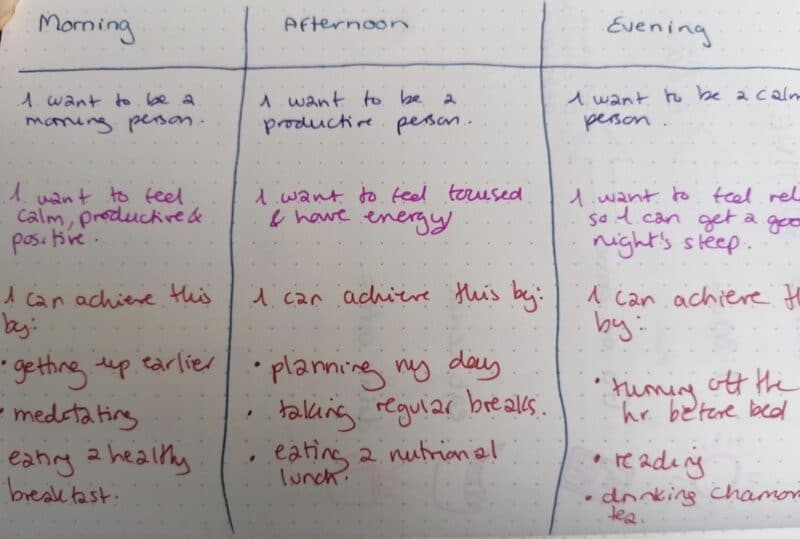 Morning
I want to be a
morning person.
I want to feel
calm, productive &
positive.
I can achieve this
by:
• getting up earlier
• meditating
eating a healthy
breakfast.
Afternoon
I want to be a
productive person.
I want to feel focused
& have energy
I can achieve this by:
• planning my day
• taking regular breaks.
• eating a nutrional
lunch.
Evening
I want to be a calm
person.
I want to feel rel
so I can get a goo
night's sleep.
I can achieve th
by:
• turning off the
hr before bed
• reading
• drinking chamom
tea.